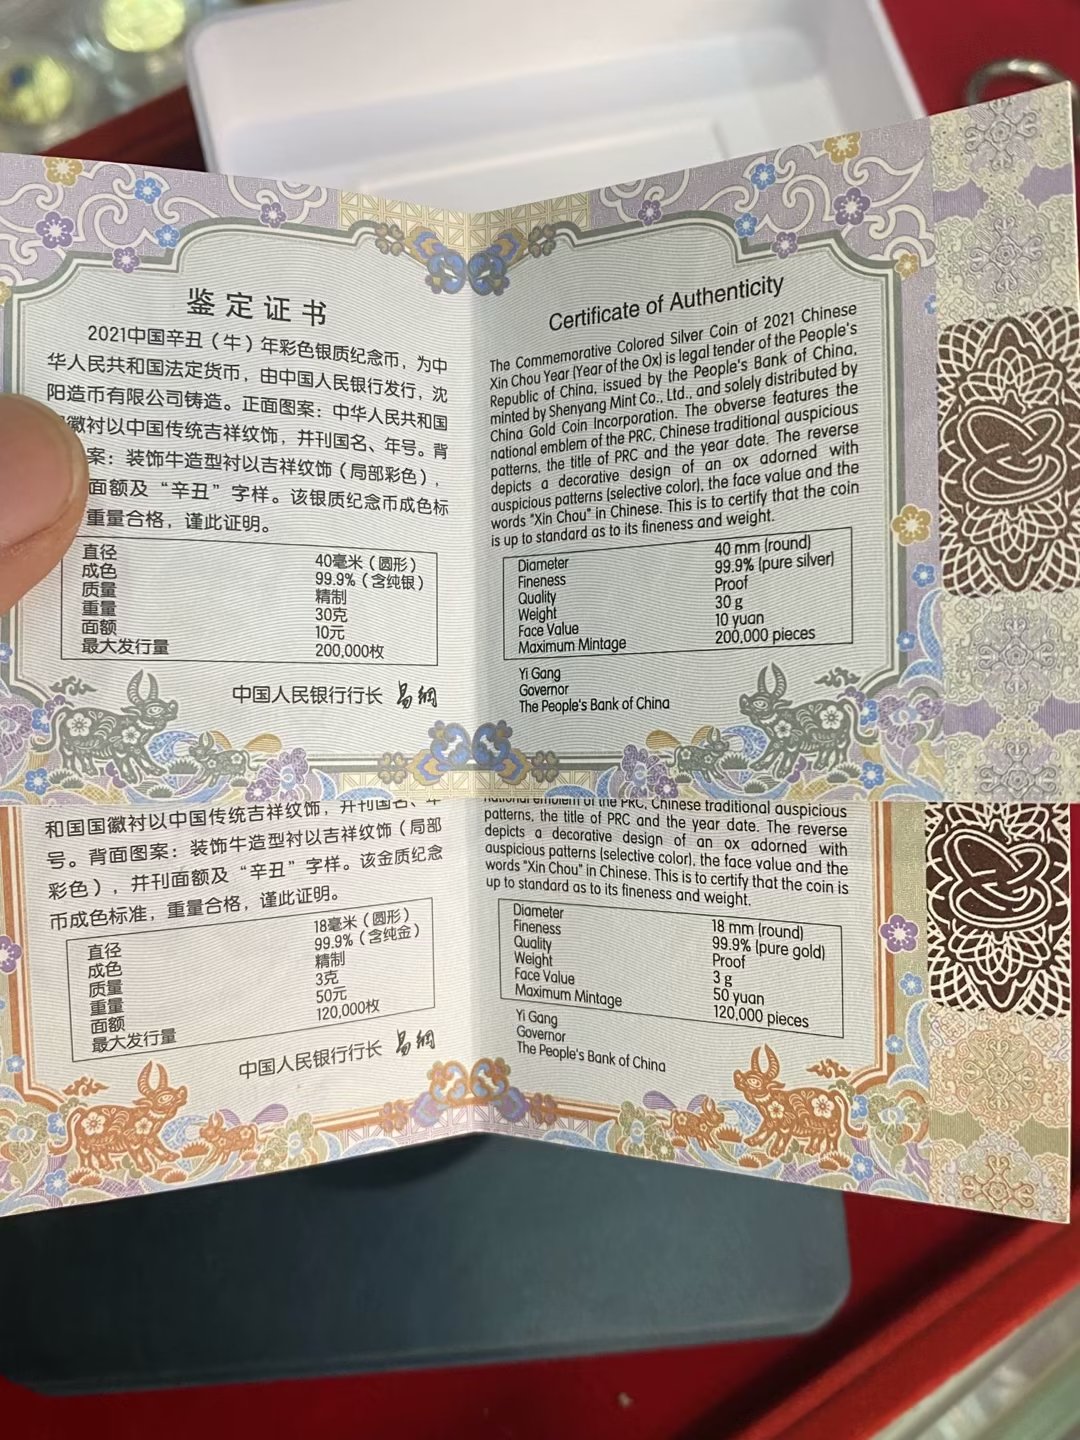 鉴定证书
2021中国辛丑（牛）年彩色银质纪念币，为中
华人民共和国法定货币，由中国人民银行发行，沈
阳造币有限公司铸造。正面图案：中华人民共和国
徽衬以中国传统吉祥纹饰，并刊国名、年号。背
案：装饰牛造型衬以吉祥纹饰（局部彩色），
面额及“辛丑”字样。该银质纪念币成色标
重量合格，谨此证明。
直径 40毫米（圆形）
成色 99.9%（含纯银）
质量 精制
重量 30克
面额 10元
最大发行量 200,000枚
中国人民银行行长 易纲
Certificate of Authenticity
The Commemorative Colored Silver Coin of 2021 Chinese
Xin Chou Year (Year of the Ox) is legal tender of the People's
Republic of China, issued by the People's Bank of China,
minted by Shenyang Mint Co., Ltd., and solely distributed by
China Gold Coin Incorporation. The obverse features the
national emblem of the PRC, Chinese traditional auspicious
patterns, the title of PRC and the year date. The reverse
depicts a decorative design of an ox adorned with
auspicious patterns (selective color), the face value and the
words "Xin Chou" in Chinese. This is to certify that the coin
is up to standard as to its fineness and weight.
Diameter 40 mm (round)
Fineness 99.9% (pure silver)
Quality Proof
Weight 30 g
Face Value 10 yuan
Maximum Mintage 200,000 pieces
Yi Gang
Governor
The People's Bank of China
和国国徽衬以中国传统吉祥纹饰，并刊国名、年
号。背面图案：装饰牛造型衬以吉祥纹饰（局部
彩色），并刊面额及“辛丑”字样。该金质纪念
币成色标准，重量合格，谨此证明。
直径 18毫米（圆形）
成色 99.9%（含纯金）
质量 精制
重量 3克
面额 50元
最大发行量 120,000枚
中国人民银行行长 易纲
national emblem of the PRC, Chinese traditional auspicious
patterns, the title of PRC and the year date. The reverse
depicts a decorative design of an ox adorned with
auspicious patterns (selective color), the face value and the
words "Xin Chou" in Chinese. This is to certify that the coin is
up to standard as to its fineness and weight.
Diameter 18 mm (round)
Fineness 99.9% (pure gold)
Quality Proof
Weight 3 g
Face Value 50 yuan
Maximum Mintage 120,000 pieces
Yi Gang
Governor
The People's Bank of China